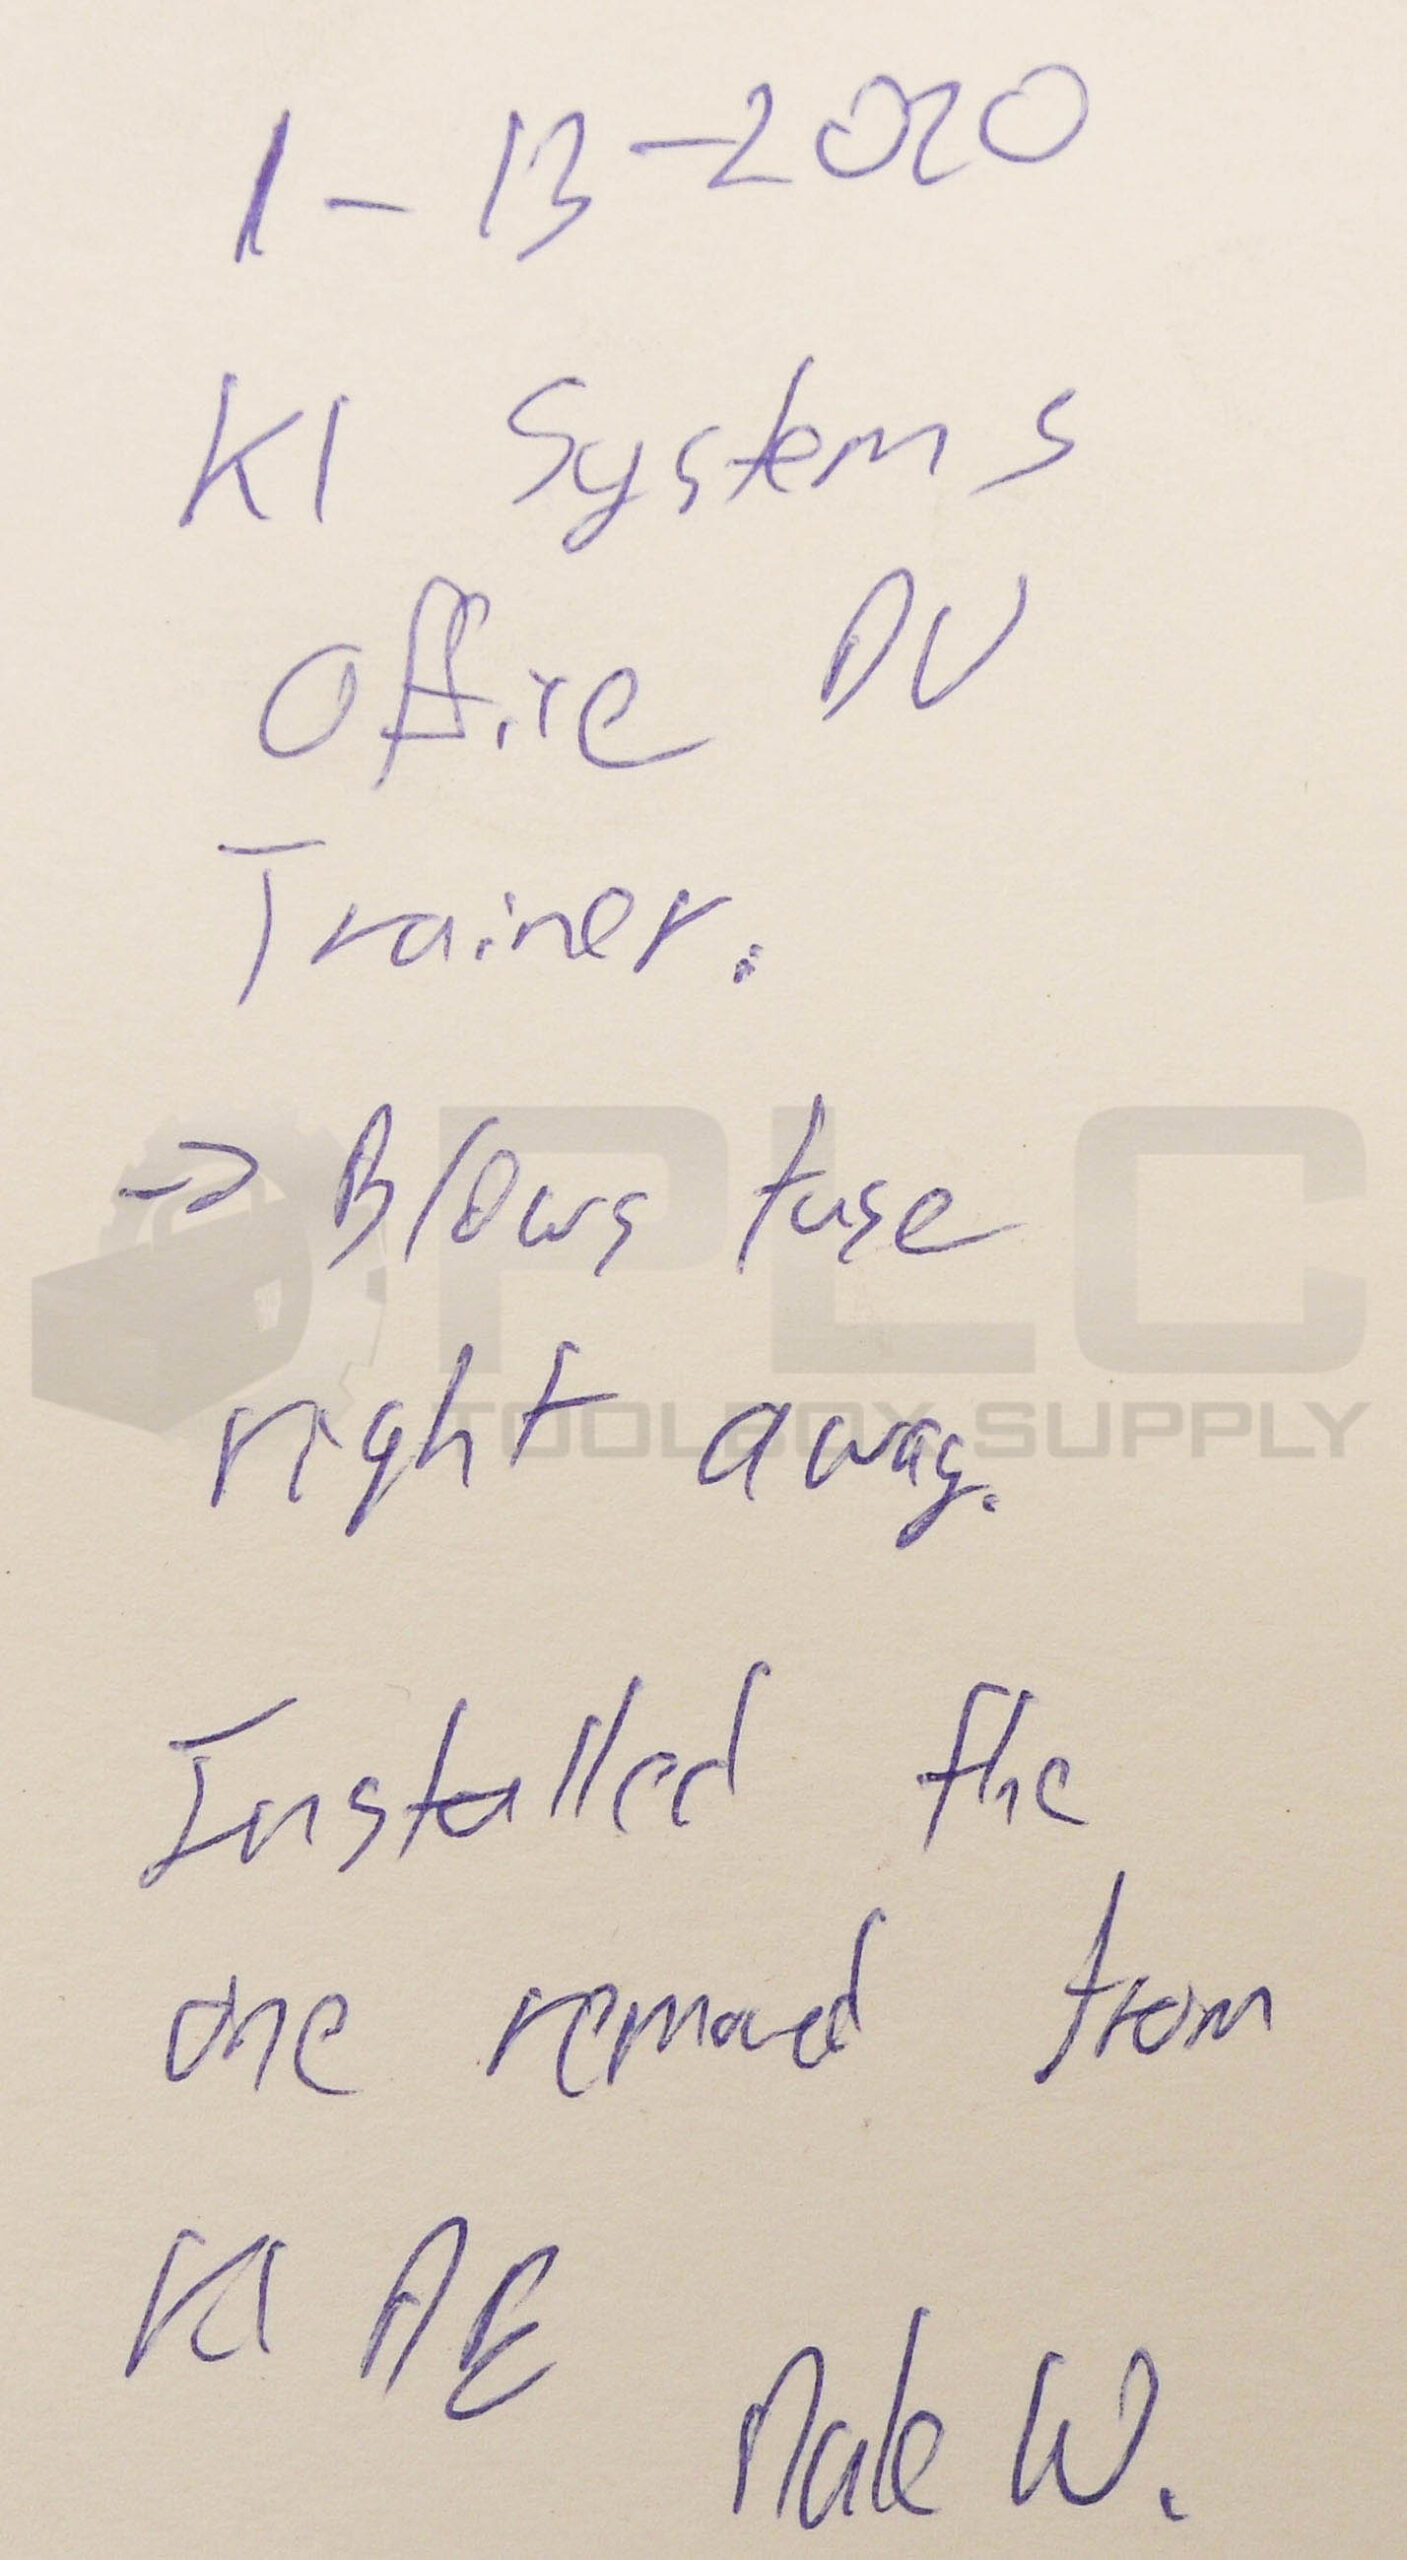 1-13-2020
KI Systems
Office DV
Trainer.
→ Blows fuse
right away.
Installed the
one removed from
KI AE
Dale W.
PLC
TOOLBOX SUPPLY